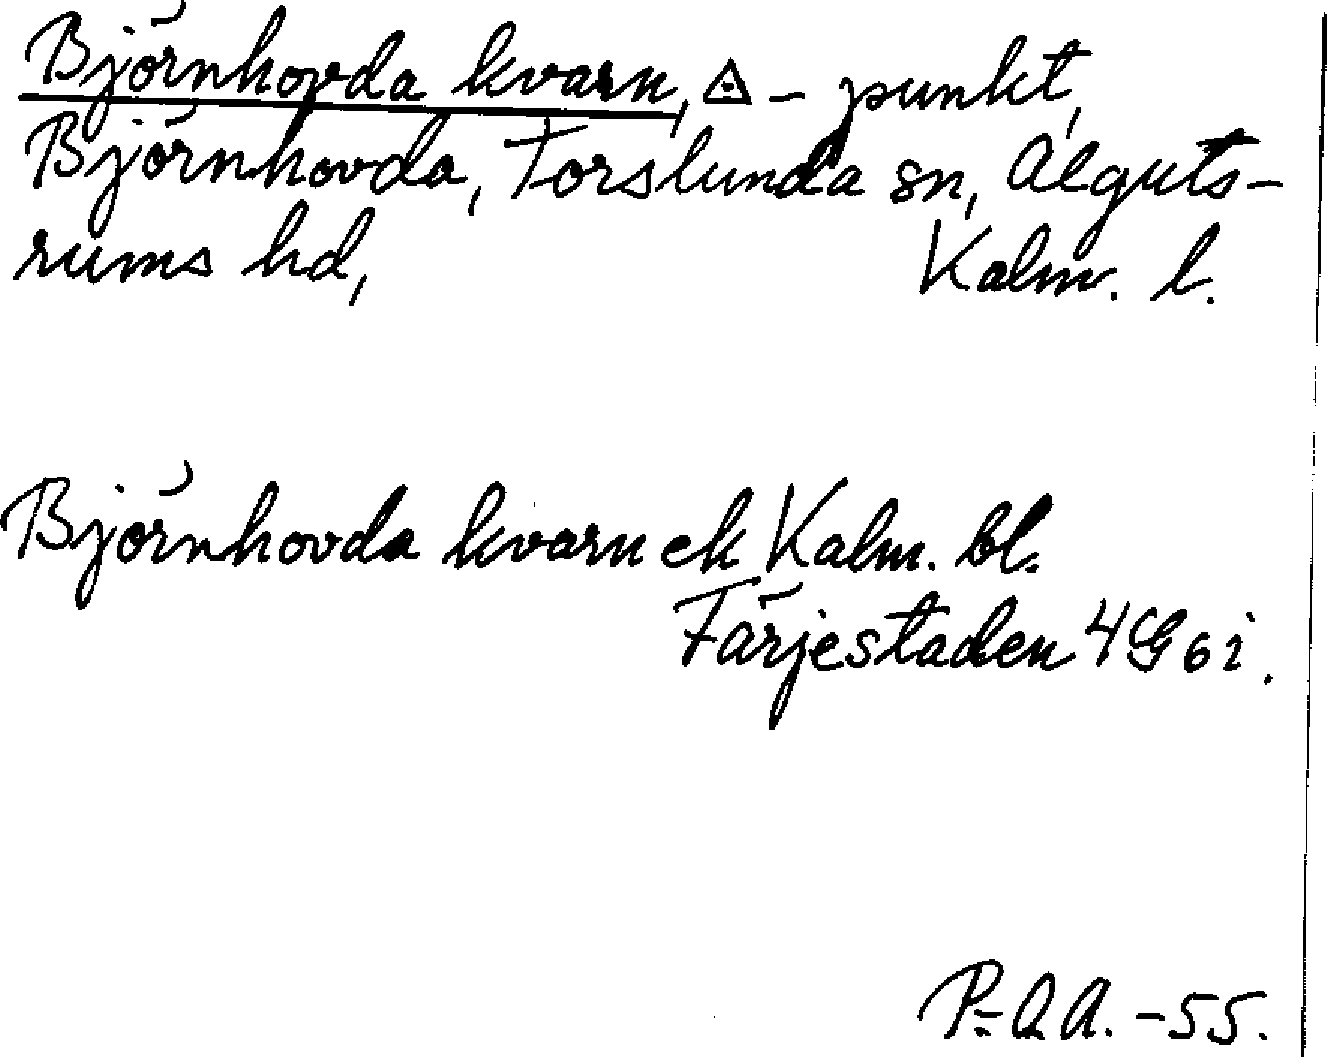 Björnhovda kvarn, ◬ - punkt,
Björnhovda, Torslunda sn, Alguts-
rums hd, Kalm. l.
Björnhovda kvarn ek Kalm. bl.
Färjestaden 4G 6i.
P-Q A. -55.